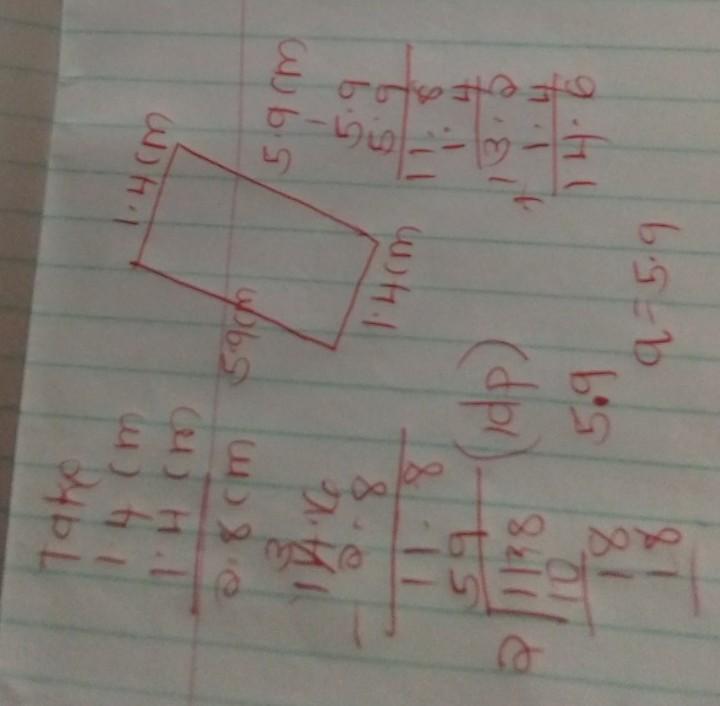 Take
1.4 cm
1.4 cm
2.8 cm
3
14.6
- 2.8
11.8
59 (1dp)
2 118
10
18
18
5.9
a = 5.9
1.4 cm
5.9cm
5.9 cm
1.4 cm
5.9
5.9
11.8
1.4
13.2
+ 1.4
14.6